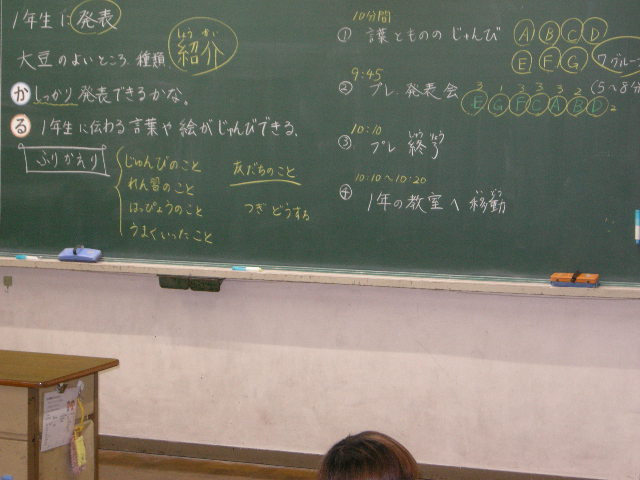 1年生に発表
大豆のよいところ、種類、
しょう かい
紹介
か しっかり発表できるかな。
る 1年生に伝わる言葉や絵がじゅんびできる。
ふりかえり
じゅんびのこと
れん習のこと
はっぴょうのこと
うまくいったこと
友だちのこと
つぎどうする
10分間
① 言葉ともののじゅんび
A B C D
E F G
7グルー
9:45
② プレ発表会
3 1 3 3 3 2
E G F C A B D 2
③ 10:10
しゅうりょう
プレ終了
10:10～10:20
いどう
④ 1年の教室へ移動